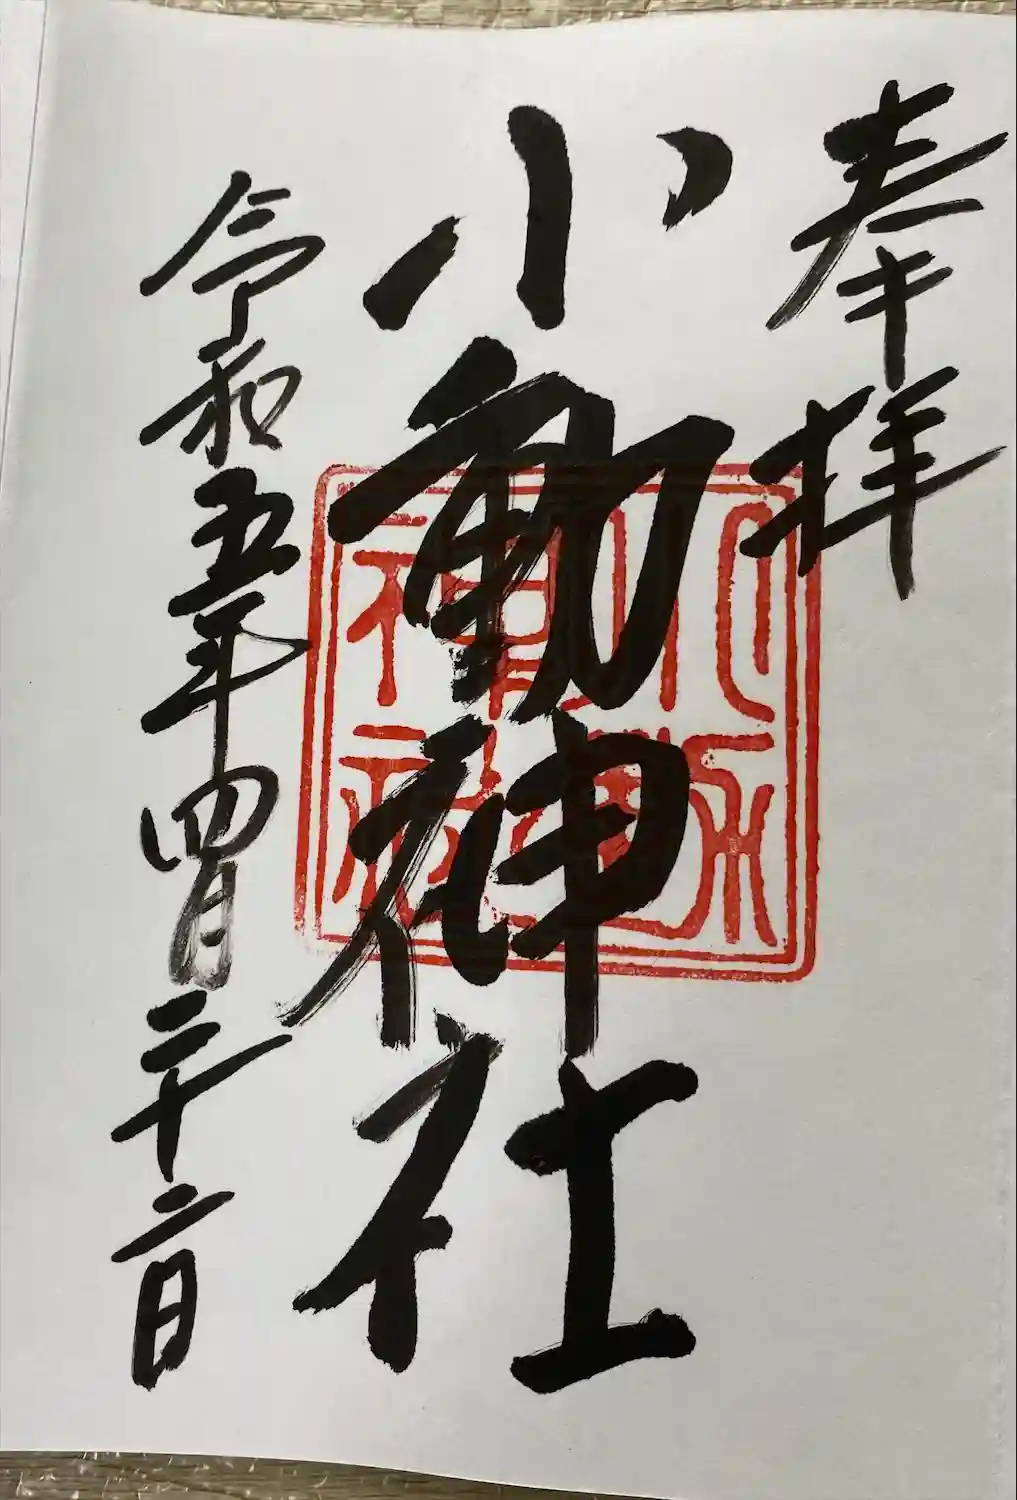 奉拝
小動神社
令和五年四月二十二日